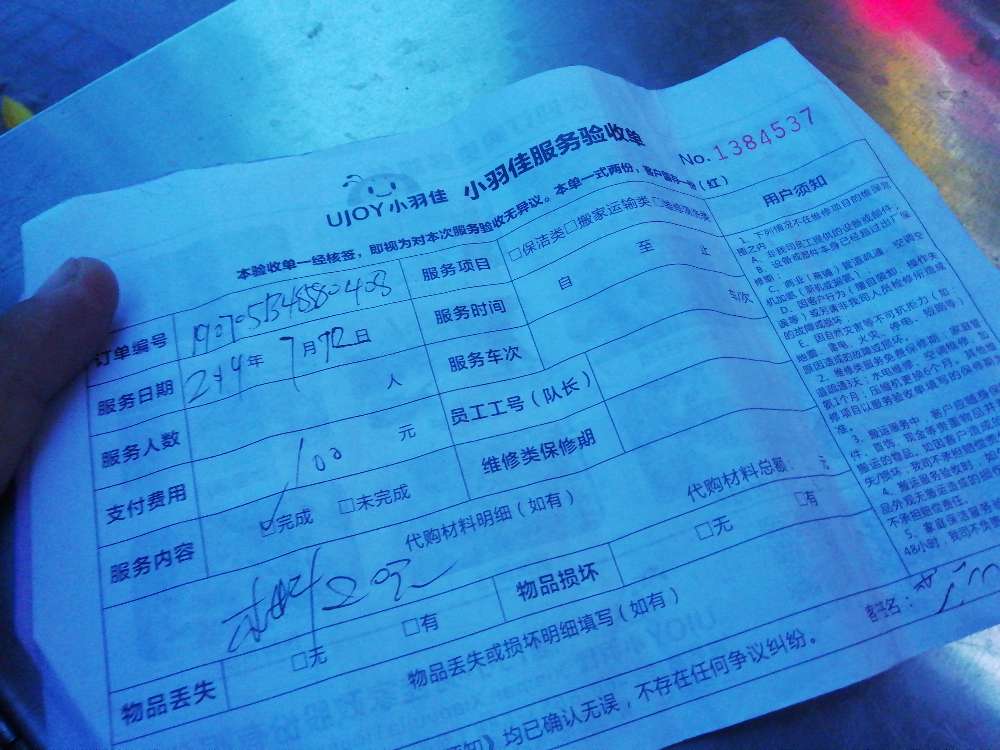 No. 1384537
UJOY 小羽佳 小羽佳服务验收单
本验收单一经核签，即视为对本次服务验收无异议。本单一式两份，客户留存一份（红）
订单编号 190705134880408 服务项目 □保洁类 □搬家运输类
服务日期 年 7 月 日 服务时间 自 至 止
服务人数 人 服务车次 车/次
支付费用 100 元 员工工号（队长）
服务内容 ☑完成 □未完成 维修类保修期
代购材料明细（如有） 代购材料总额： 元
物品丢失 □无 □有 物品损坏 □无 □有
物品丢失或损坏明细填写（如有）
均已确认无误，不存在任何争议纠纷。
用户须知
1、下列情况不在维修项目的维保范
围之内：A、非我司员工提供的设备或部件；
B、设备或部件本身已经超过出厂保
修期；
C、商业（商铺）管道疏通、空调空
D、因客户行为（
误等）或另请非我司人员检修所造成
的故障或损坏。
E、因自然灾害等不可抗拒力（如：
地震、雷电、火灾、停电、
原因造成的故障或损坏。
2、维修类服务免费保修期：家庭管
道疏通3天；水电维修、空调维修、加
氨1个月；压缩机更换6个月。其他维
修项目以服务验收单填写的保修期
3、搬运服务中，客户应随身保
件、首饰、现金等贵重物品并
搬运的物品，如因客户造成的
失/损坏，我司不承担赔偿责
4、搬运服务验收时，如
品外观无搬运造成的损
不承担赔偿责任。
5、家庭保洁服务
48小时，我司不负责